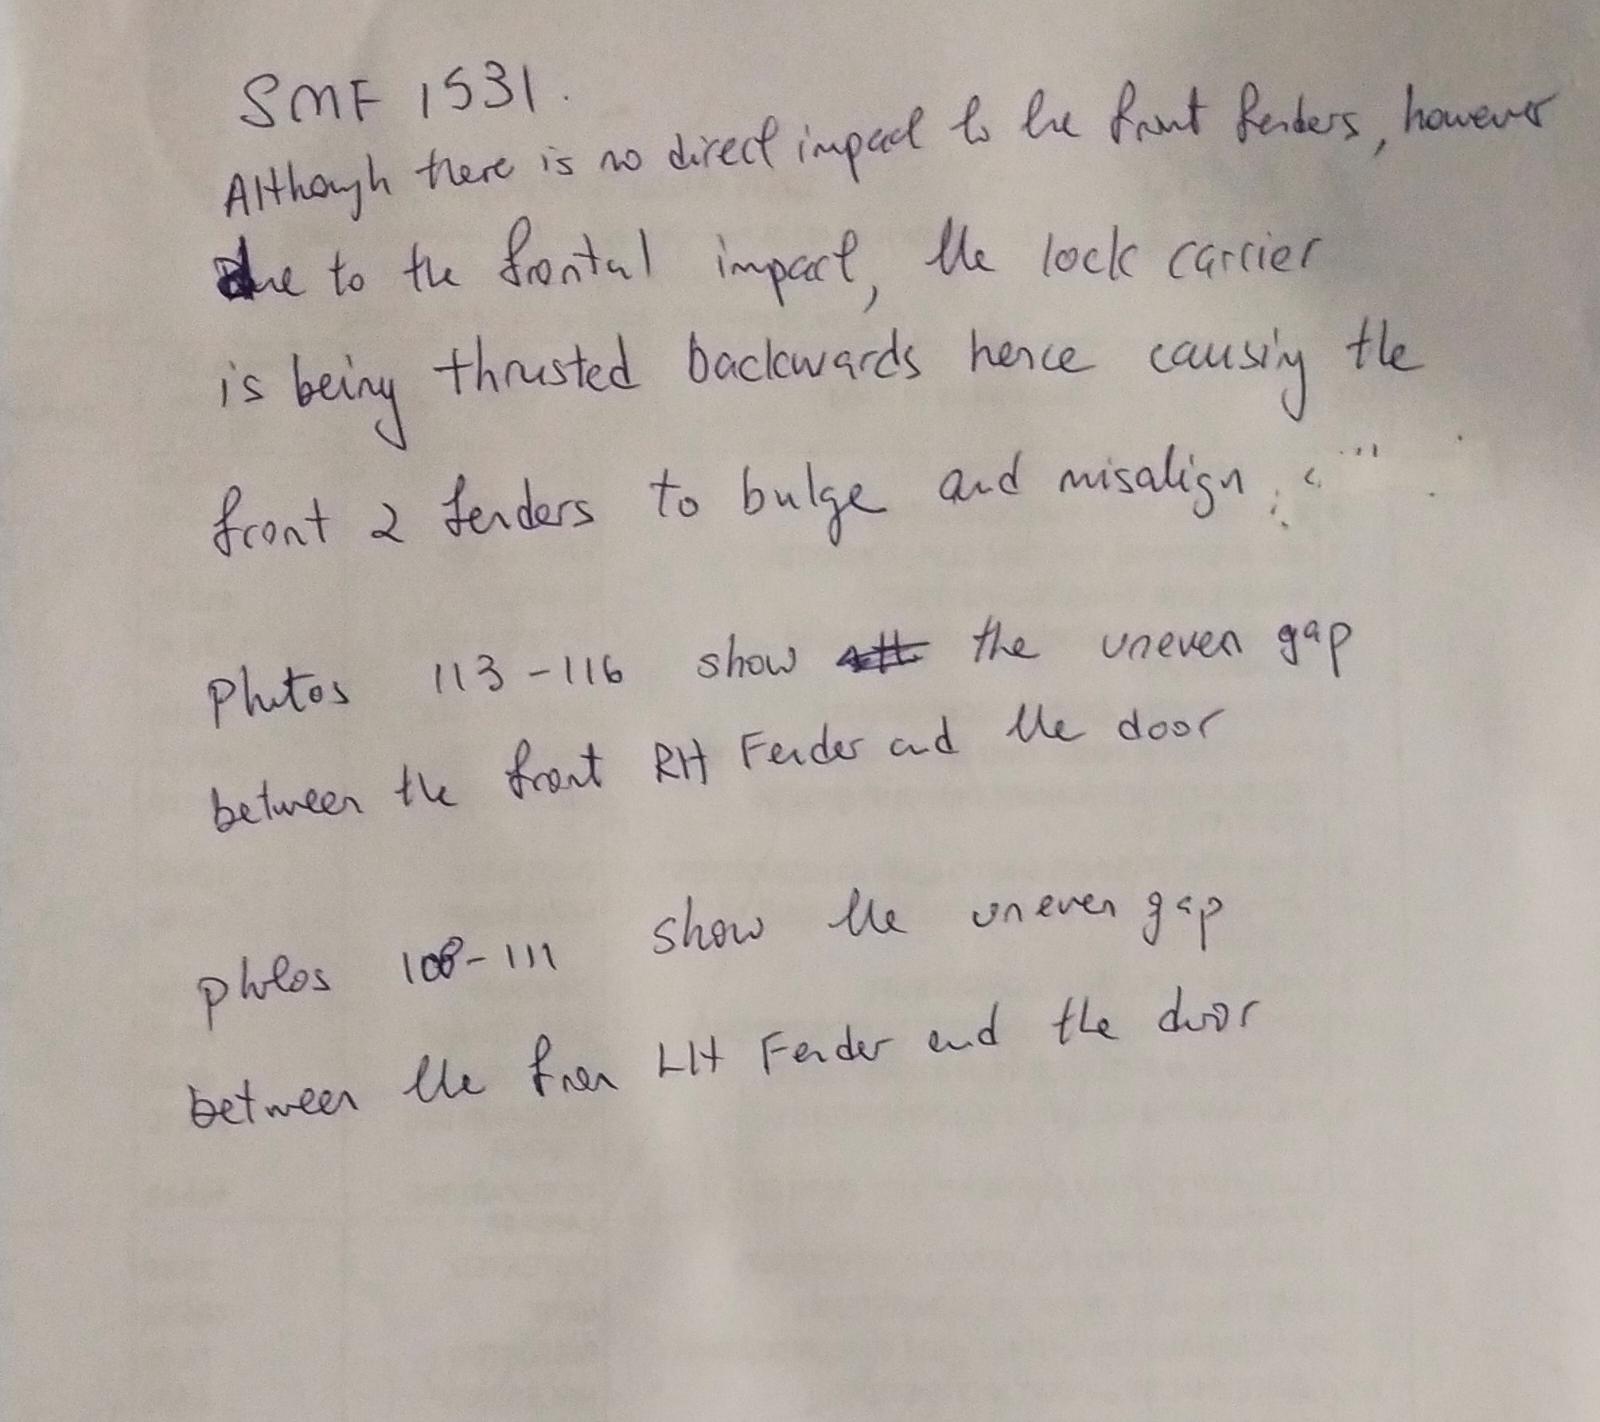 SMF 1531.
Although there is no direct impact to the front fenders, however
due to the frontal impact, the lock carrier
is being thrusted backwards hence causing the
front 2 fenders to bulge and misalign
Photos 113-116 show the uneven gap
between the front RH Fender and the door
photos 108-111 show the uneven gap
between the fron LH Fender and the door